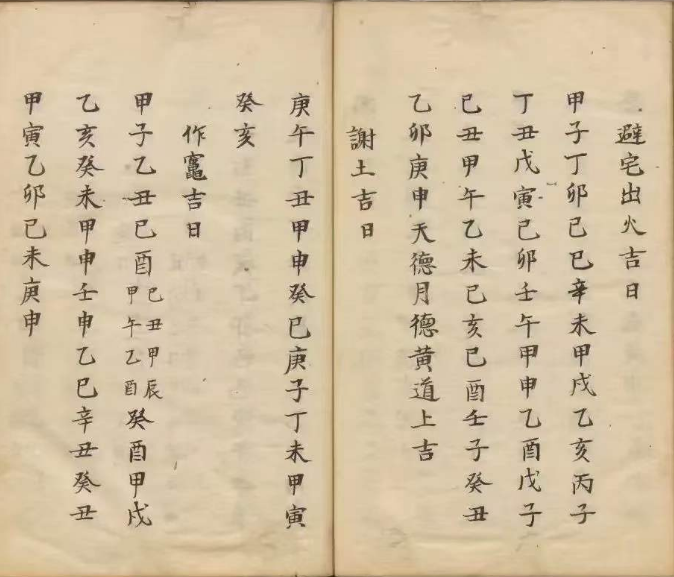 避宅出火吉日
甲子丁卯己巳辛未甲戌乙亥丙子
丁丑戊寅己卯壬午甲申乙酉戊子
己丑甲午乙未己亥己酉壬子癸丑
乙卯庚申天德月德黄道上吉
謝土吉日
庚午丁丑甲申癸巳庚子丁未甲寅
癸亥
作竈吉日
甲子乙丑己酉己丑甲辰甲午乙酉癸酉甲戌
乙亥癸未甲申壬申乙巳辛丑癸丑
甲寅乙卯己未庚申